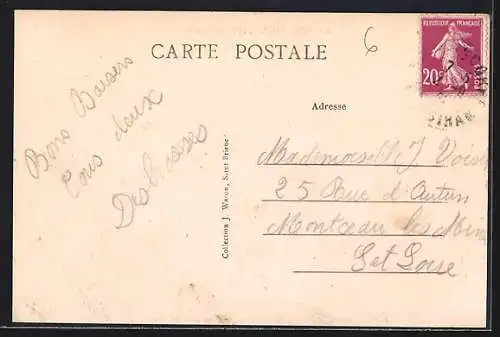 CARTE POSTALE
6
REPUBLIQUE FRANÇAISE
20c
Adresse
Bons Baisers
Tous deux
Collection J. Waron, Saint-Brieuc
Mademoiselle J Voisin
25 Rue d'Autun
Montceau les Mines
S et Loire